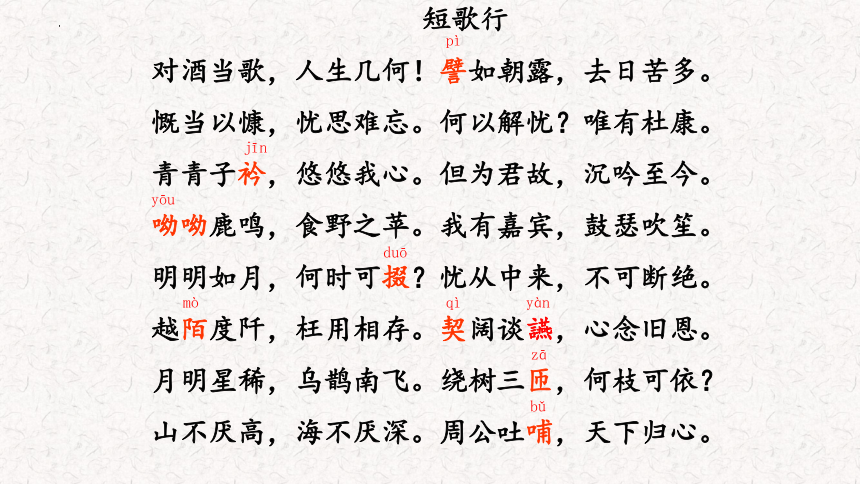 短歌行
pì
对酒当歌，人生几何！譬如朝露，去日苦多。
慨当以慷，忧思难忘。何以解忧？唯有杜康。
jīn
青青子衿，悠悠我心。但为君故，沉吟至今。
yōu
呦呦鹿鸣，食野之苹。我有嘉宾，鼓瑟吹笙。
duō
明明如月，何时可掇？忧从中来，不可断绝。
mò qì yàn
越陌度阡，枉用相存。契阔谈讌，心念旧恩。
zā
月明星稀，乌鹊南飞。绕树三匝，何枝可依？
bǔ
山不厌高，海不厌深。周公吐哺，天下归心。